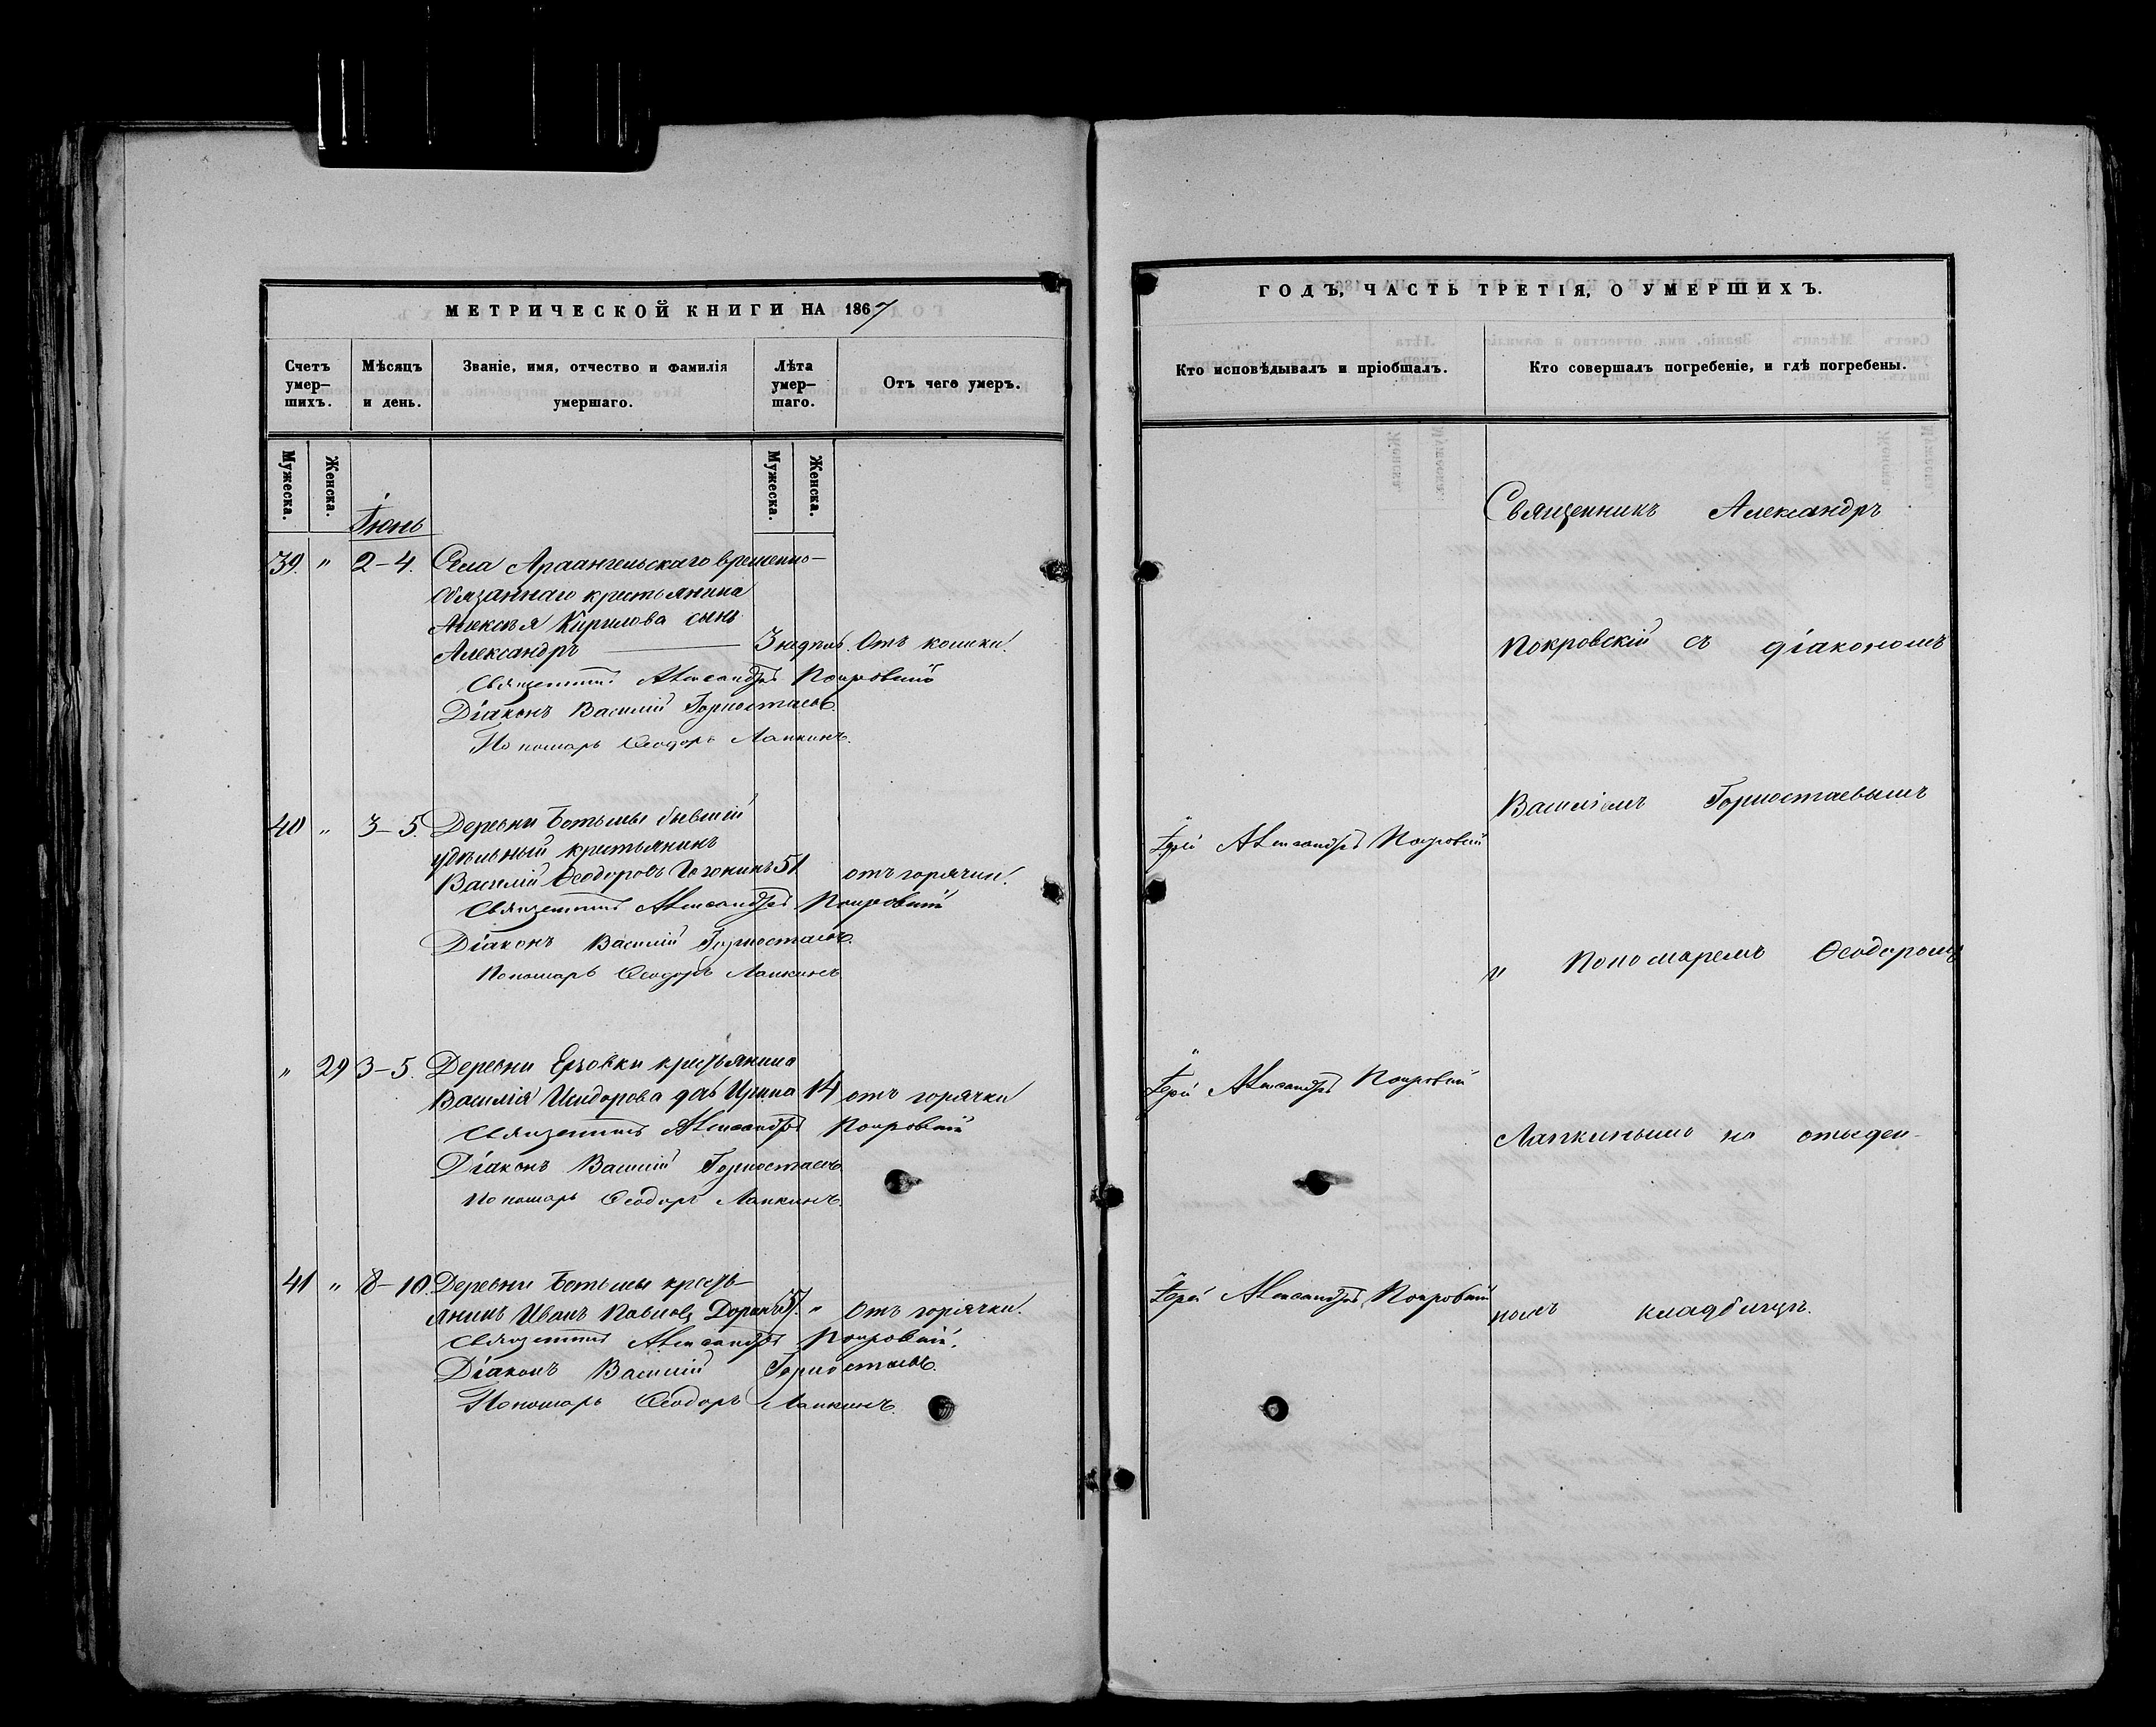 МЕТРИЧЕСКОЙ КНИГИ НА 1867
Счетъ умер-шихъ.
Мѣсяцъ и день.
Званіе, имя, отчество и фамилія умершаго.
Лѣта умер-шаго.
Отъ чего умеръ.
Мужеска.
Женска.
Мужеска.
Женска.
Іюнь
39. " 2-4. Села Архангельскаго временно-
обязаннаго крестьянина
Алексѣя Кирилова сынъ
Александръ 3 недѣль. Отъ
Священникъ Александръ Покровскій
Діаконъ Василій Горностаевъ.
Пономарь Ѳеодоръ Лапкинъ.
40 " 3-5. Деревни Ботьмы бывшій
удѣльный крестьянинъ
Василій Ѳеодоровъ 51 отъ горячки.
Священникъ Александръ Покровскій
Діаконъ Василій Горностаевъ.
Пономарь Ѳеодоръ Лапкинъ
" 29 3-5. Деревни Ерзовки крестьянина
Василія Исидорова дочь Ирина 14 отъ горячки
Священникъ Александръ Покровскій
Діаконъ Василій Горностаевъ.
Пономарь Ѳеодоръ Лапкинъ.
41 " 8-10. Деревни Ботьмы кресть-
янинъ Иванъ Павловъ " Отъ горячки.
Священникъ Александръ Покровскій.
Діаконъ Василій Горностаевъ.
Пономарь Ѳеодоръ Лапкинъ.
ГОДЪ, ЧАСТЬ ТРЕТІЯ, О УМЕРШИХЪ.
Кто исповѣдывалъ и пріобщалъ.
Кто совершалъ погребеніе, и гдѣ погребены.
Священникъ Александръ
Покровскій съ діакономъ
Василіемъ Горностаевымъ
Іерей Александръ Покровскій
и Пономаремъ Ѳеодоромъ
Іерей Александръ Покровскій
Лапкинымъ на отведен-
Іерей Александръ Покровскій
номъ кладбищѣ.